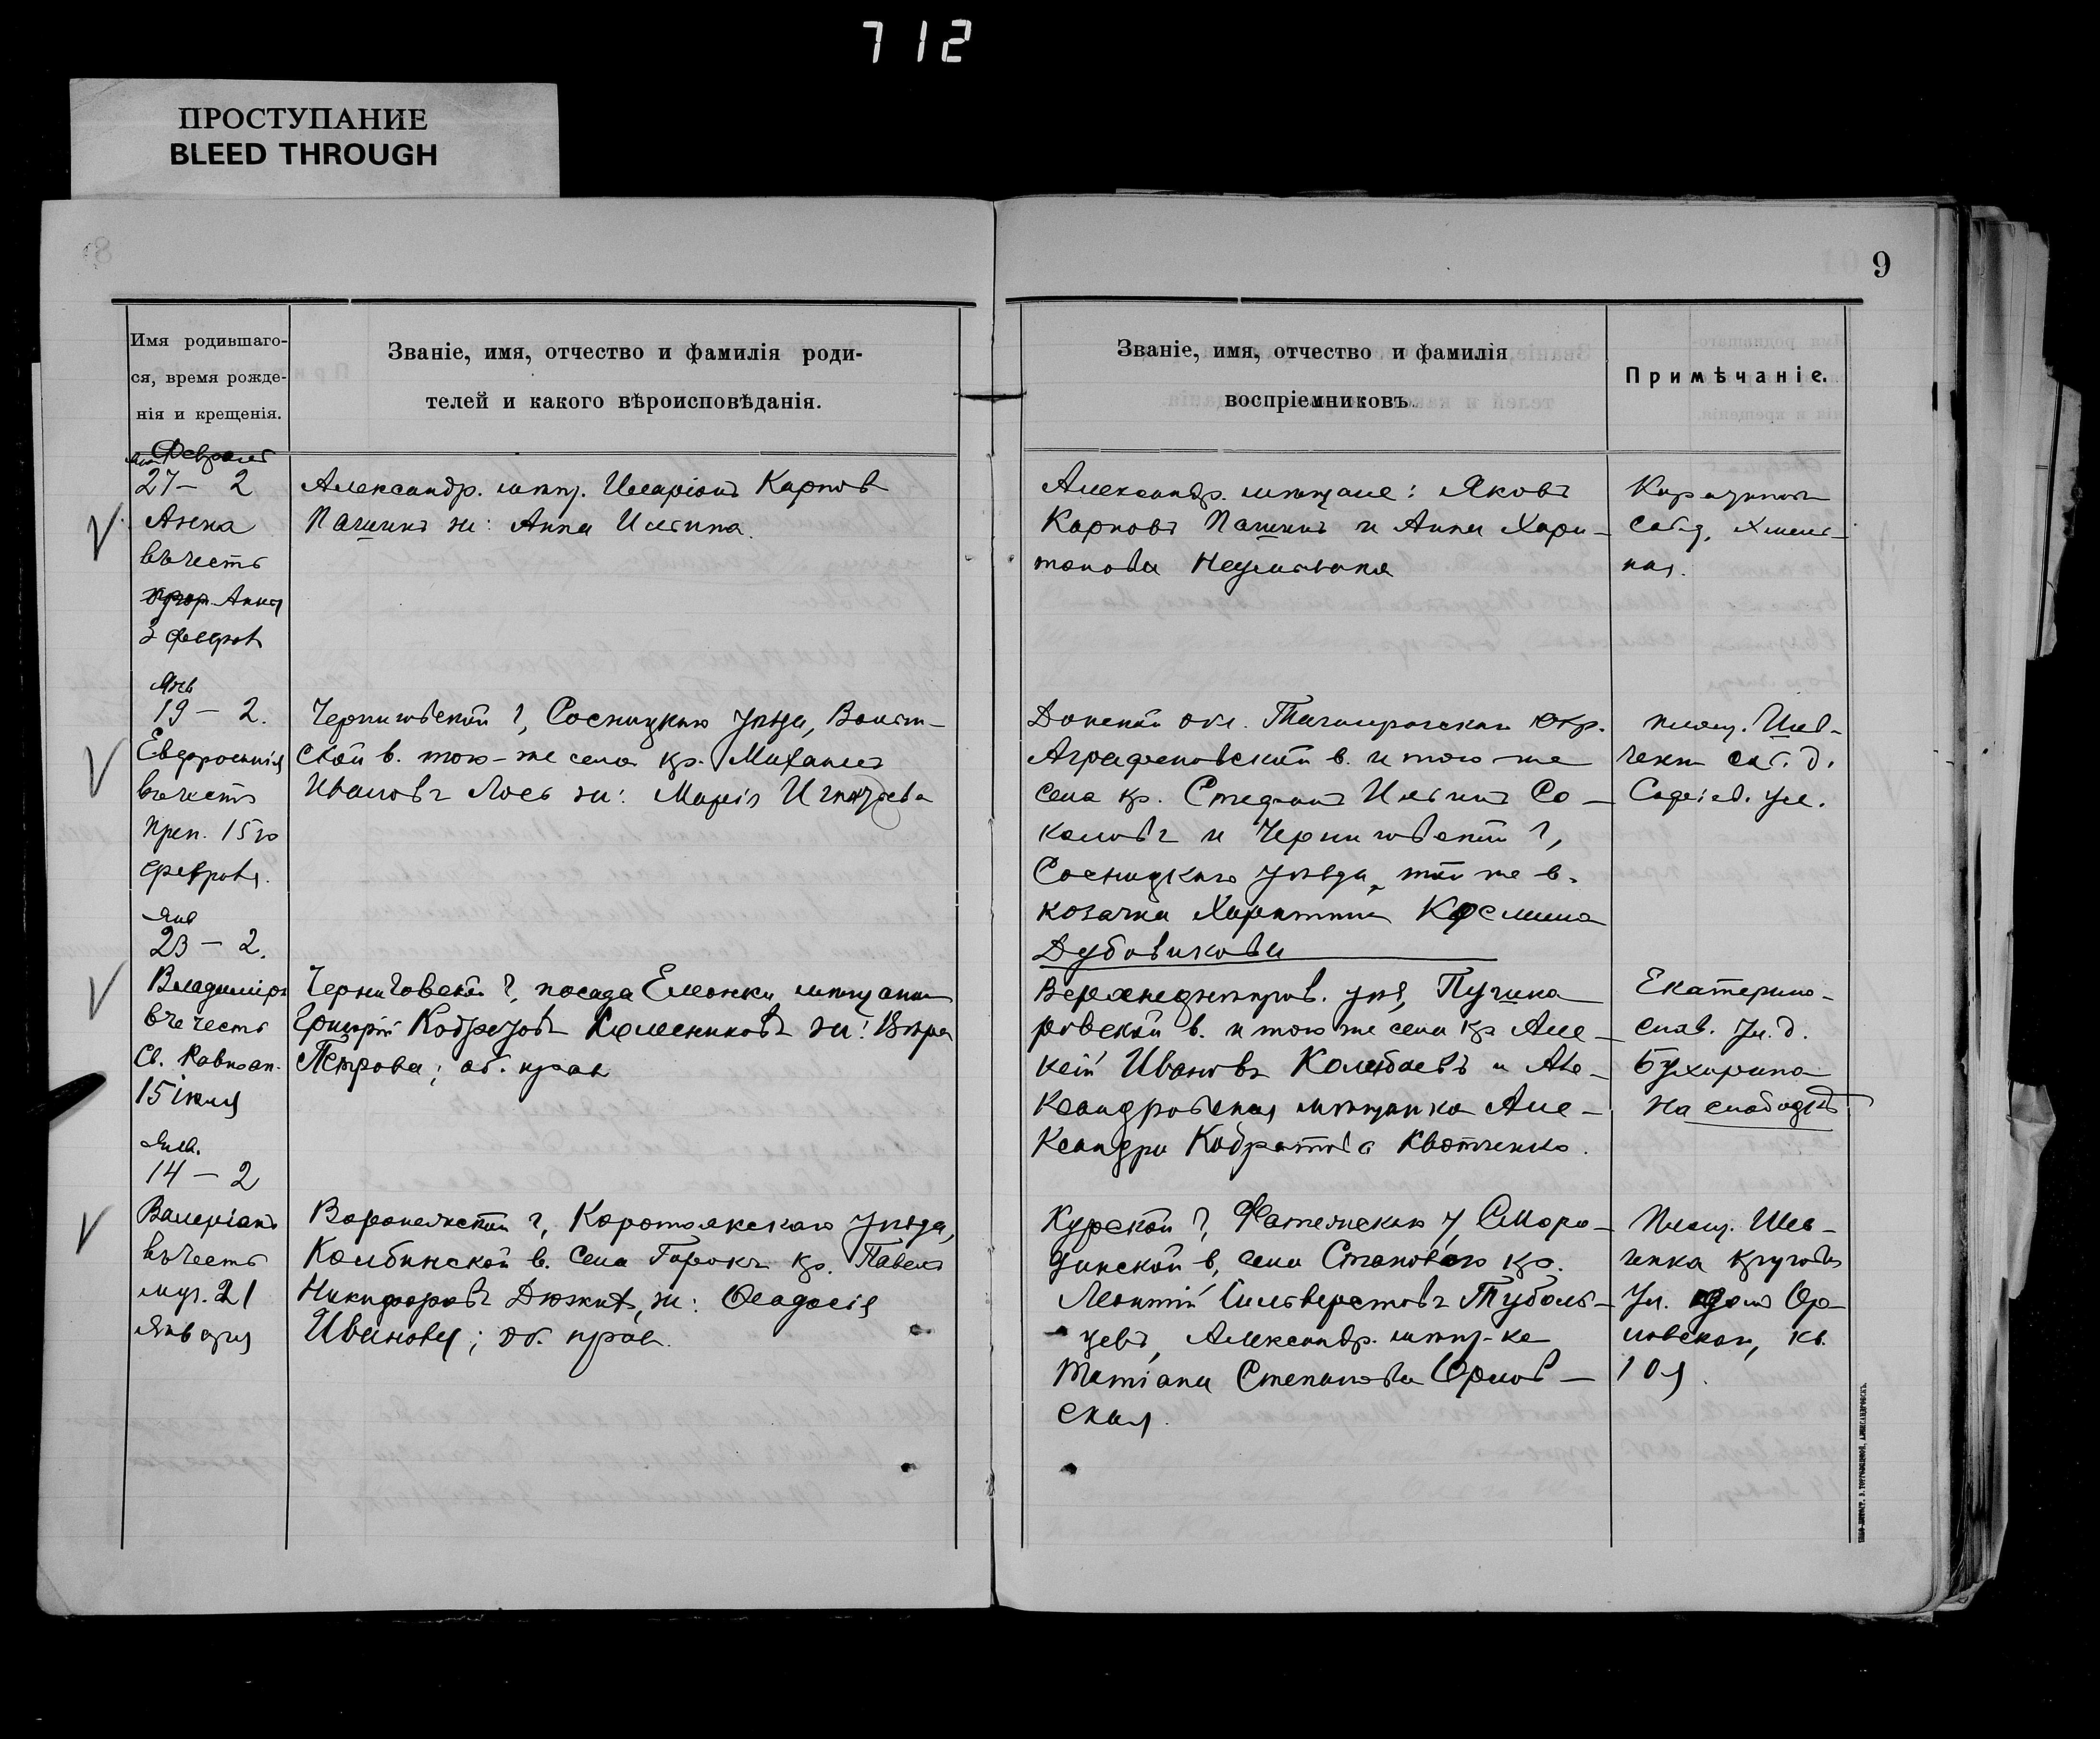 712
ПРОСТУПАНИЕ
BLEED THROUGH
9
Имя родившаго-
ся, время рожде-
нія и крещенія.
Званіе, имя, отчество и фамилія роди-
телей и какого вѣроисповѣданія.
Званіе, имя, отчество и фамилія
воспріемниковъ.
Примѣчаніе.
Февраля
27 – 2
Анна
въ честь
Анны
3 февр
Александр. мѣщ. Иларіонъ Карпов
Пашинъ ж: Анна Ильина.
Александр. мѣщане: Яковъ
Карповъ Пашинъ и Анна Хари-
тонова
ная.
Янв
19 – 2.
Евфросинія
въ честь
преп. 15го
февраля.
Черниговской г, Сосницкаго уѣзда,
ской в. того-же села кр. Михаилъ
Ивановъ Лось ж: Марія Игнатьева
Донской обл. Таганрогскаго окр.
Аграфеновской в. и того же
села кр. Стефанъ Ильинъ Со-
коловъ и Черниговской г,
Сосницкаго уѣзда, той же в.
козачка Харитина Космина
Дубовикова
площ. Шев-
ченк соб. д.
ул.
Янв
23 – 2.
Владиміръ
въ честь
Св. Равноап.
15 іюля
Черниговской г, посада Еліонки мѣщанин
Григорій Кодратовъ ж: Вѣра
Петрова; об. прав
Верхнеднѣпров. уѣз,
ровской в. и того же села кр Але-
ксѣй Ивановъ и Але-
ксандровская мѣщанка Але-
ксандра Кодратова Квотченко.
Екатерино-
слав. ул. д.
Бухарина
на слободкѣ
Янв.
14 – 2
Валеріанъ
въ честь
муч. 21
Января
Воронежской г, Коротоякскаго уѣзда,
Колбинской в. села Горокъ кр. Павелъ
Никифоровъ ж: Ѳеодосія
Иванова; об. прав.
Курской г, Фатежскаго у, Сморо-
динской в, села Становаго кр.
Леонтій Сильверстовъ Туболь-
цевъ, Александр. мѣщ-ка
Татіана Степанова Орлов-
ская.
Площ. Шев-
ченка Круговая
ул. домъ Ор-
ловской, кв.
10я.